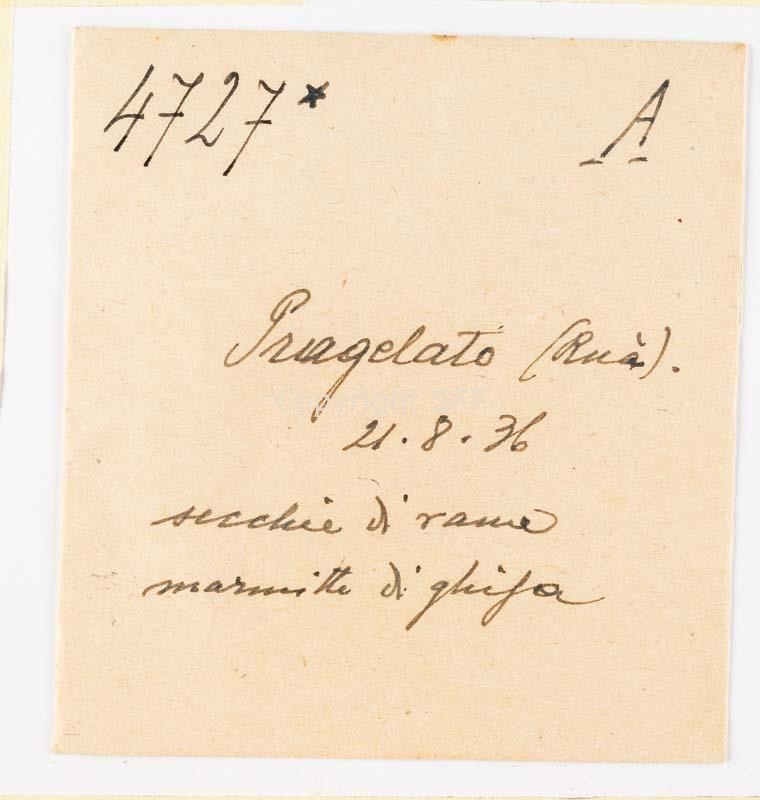 4727* A
Pragelato (Ruà).
21.8.36
secchie di rame
marmitte di ghisa